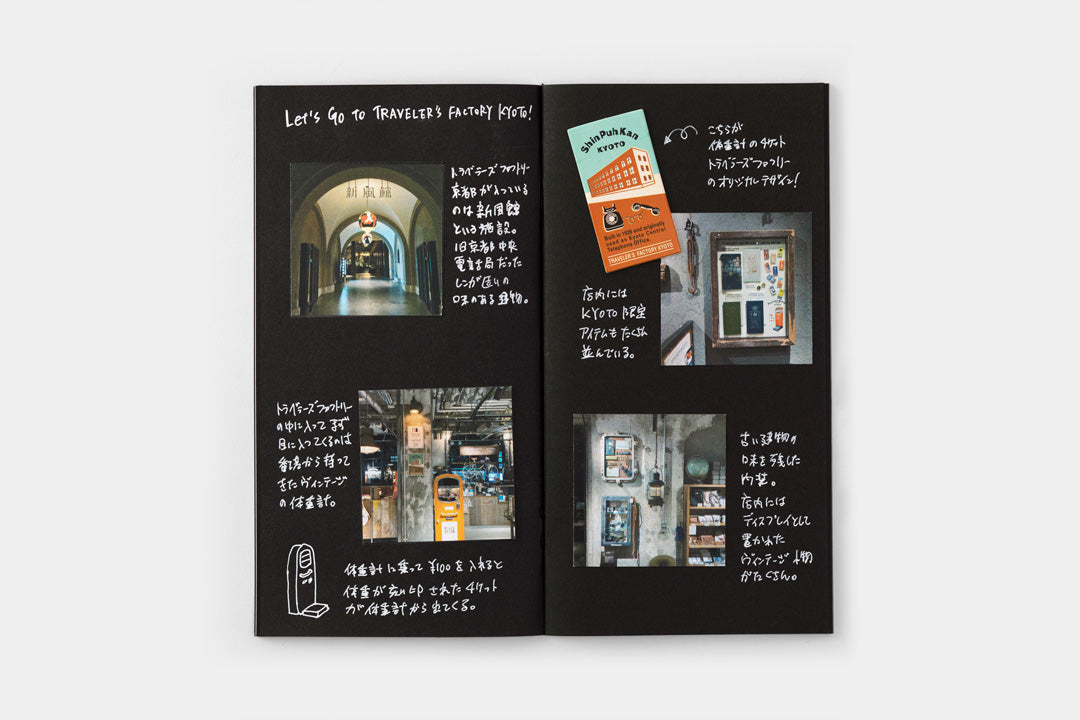 Let's Go to TRAVELER'S FACTORY KYOTO!
新風館
トラベラーズファクトリー
京都が入っている
のは新風館
という施設。
旧京都中央
電話局だった
レンガ造りの
味のある建物。
トラベラーズファクトリー
の中に入ってまず
目に入ってくるのは
香港から持って
きたヴィンテージ
の体重計。
体重計に乗って¥100を入れると
体重が刻印されたチケット
が体重計から出てくる。
ShinPuhKan
KYOTO
Built in 1926 and originally
used as Kyoto Central
Telephone Office.
TRAVELER'S FACTORY KYOTO
こちらが
体重計のチケット
トラベラーズファクトリー
のオリジナルデザイン!
店内には
KYOTO限定
アイテムもたくさん
並んでいる。
古い建物の
味を残した
内装。
店内には
ディスプレイとして
置かれた
ヴィンテージ小物
がたくさん。